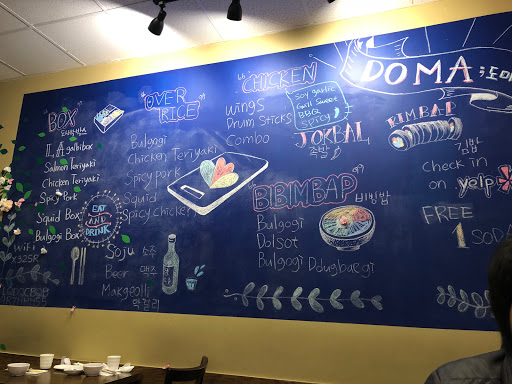 BOX
도시락박스
L.A galbi box
Salmon Teriyaki
Chicken Teriyaki
Spicy Pork
Squid Box
Bulgogi Box
WiFi
EAT
AND
DRINK
OVER
RICE
Bulgogi
Chicken Teriyaki
Spicy pork
Squid
Spicy chicken
Soju 소주
Beer 맥주
Makgeolli
막걸리
CHICKEN
wings
Drum Sticks
Combo
Soy garlic
Grill Sweet
BBQ
Spicy
JOKBAL
족발
BBIMBAP 비빔밥
Bulgogi
Dolsot
Bulgogi Ddugbaegi
DOMA 도마
KIMBAP
김밥
check in
on yelp
FREE
1 SODA